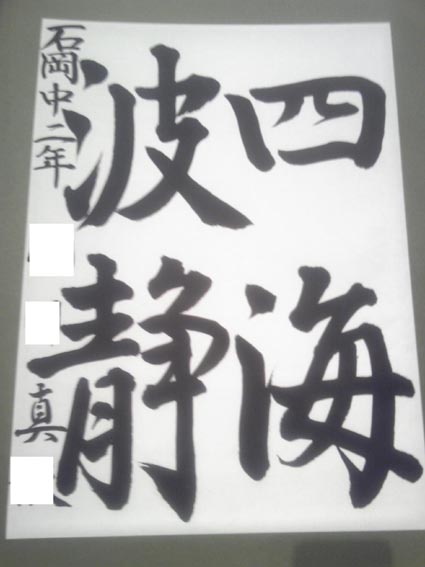 四海
波静
石岡中二年
真